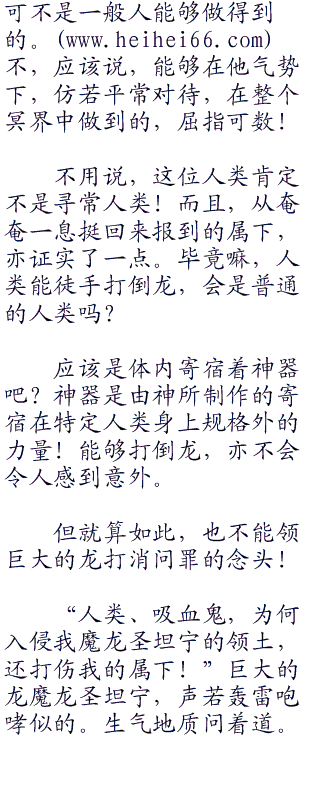 可不是一般人能够做得到
的。(www.heihei66.com)
不，应该说，能够在他气势
下，仿若平常对待，在整个
冥界中做到的，屈指可数！
不用说，这位人类肯定
不是寻常人类！而且，从奄
奄一息挺回来报到的属下，
亦证实了一点。毕竟嘛，人
类能徒手打倒龙，会是普通
的人类吗？
应该是体内寄宿着神器
吧？神器是由神所制作的寄
宿在特定人类身上规格外的
力量！能够打倒龙，亦不会
令人感到意外。
但就算如此，也不能领
巨大的龙打消问罪的念头！
“人类、吸血鬼，为何
入侵我魔龙圣坦宁的领土，
还打伤我的属下！”巨大的
龙魔龙圣坦宁，声若轰雷咆
哮似的。生气地质问着道。